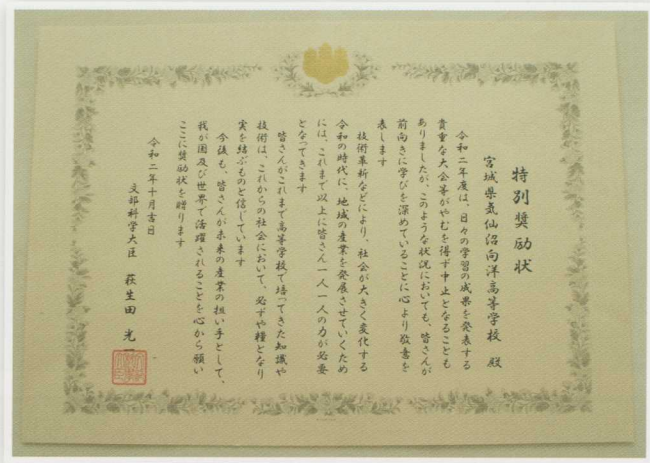 特別奨励状
宮城県気仙沼向洋高等学校 殿
令和二年度は、日々の学習の成果を発表する
貴重な大会等がやむを得ず中止となることも
ありましたが、このような状況においても、皆さんが
前向きに学びを深めていることに心より敬意を
表します
技術革新などにより、社会が大きく変化する
令和の時代に、地域の産業を発展させていくため
には、これまで以上に皆さん一人一人の力が必要
となってきます
皆さんがこれまで高等学校で培ってきた知識や
技術は、これからの社会において、必ずや糧となり
実を結ぶものと信じています
今後も、皆さんが未来の産業の担い手として、
我が国及び世界で活躍されることを心から願い
ここに奨励状を贈ります
令和二年十月吉日
文部科学大臣 萩生田 光